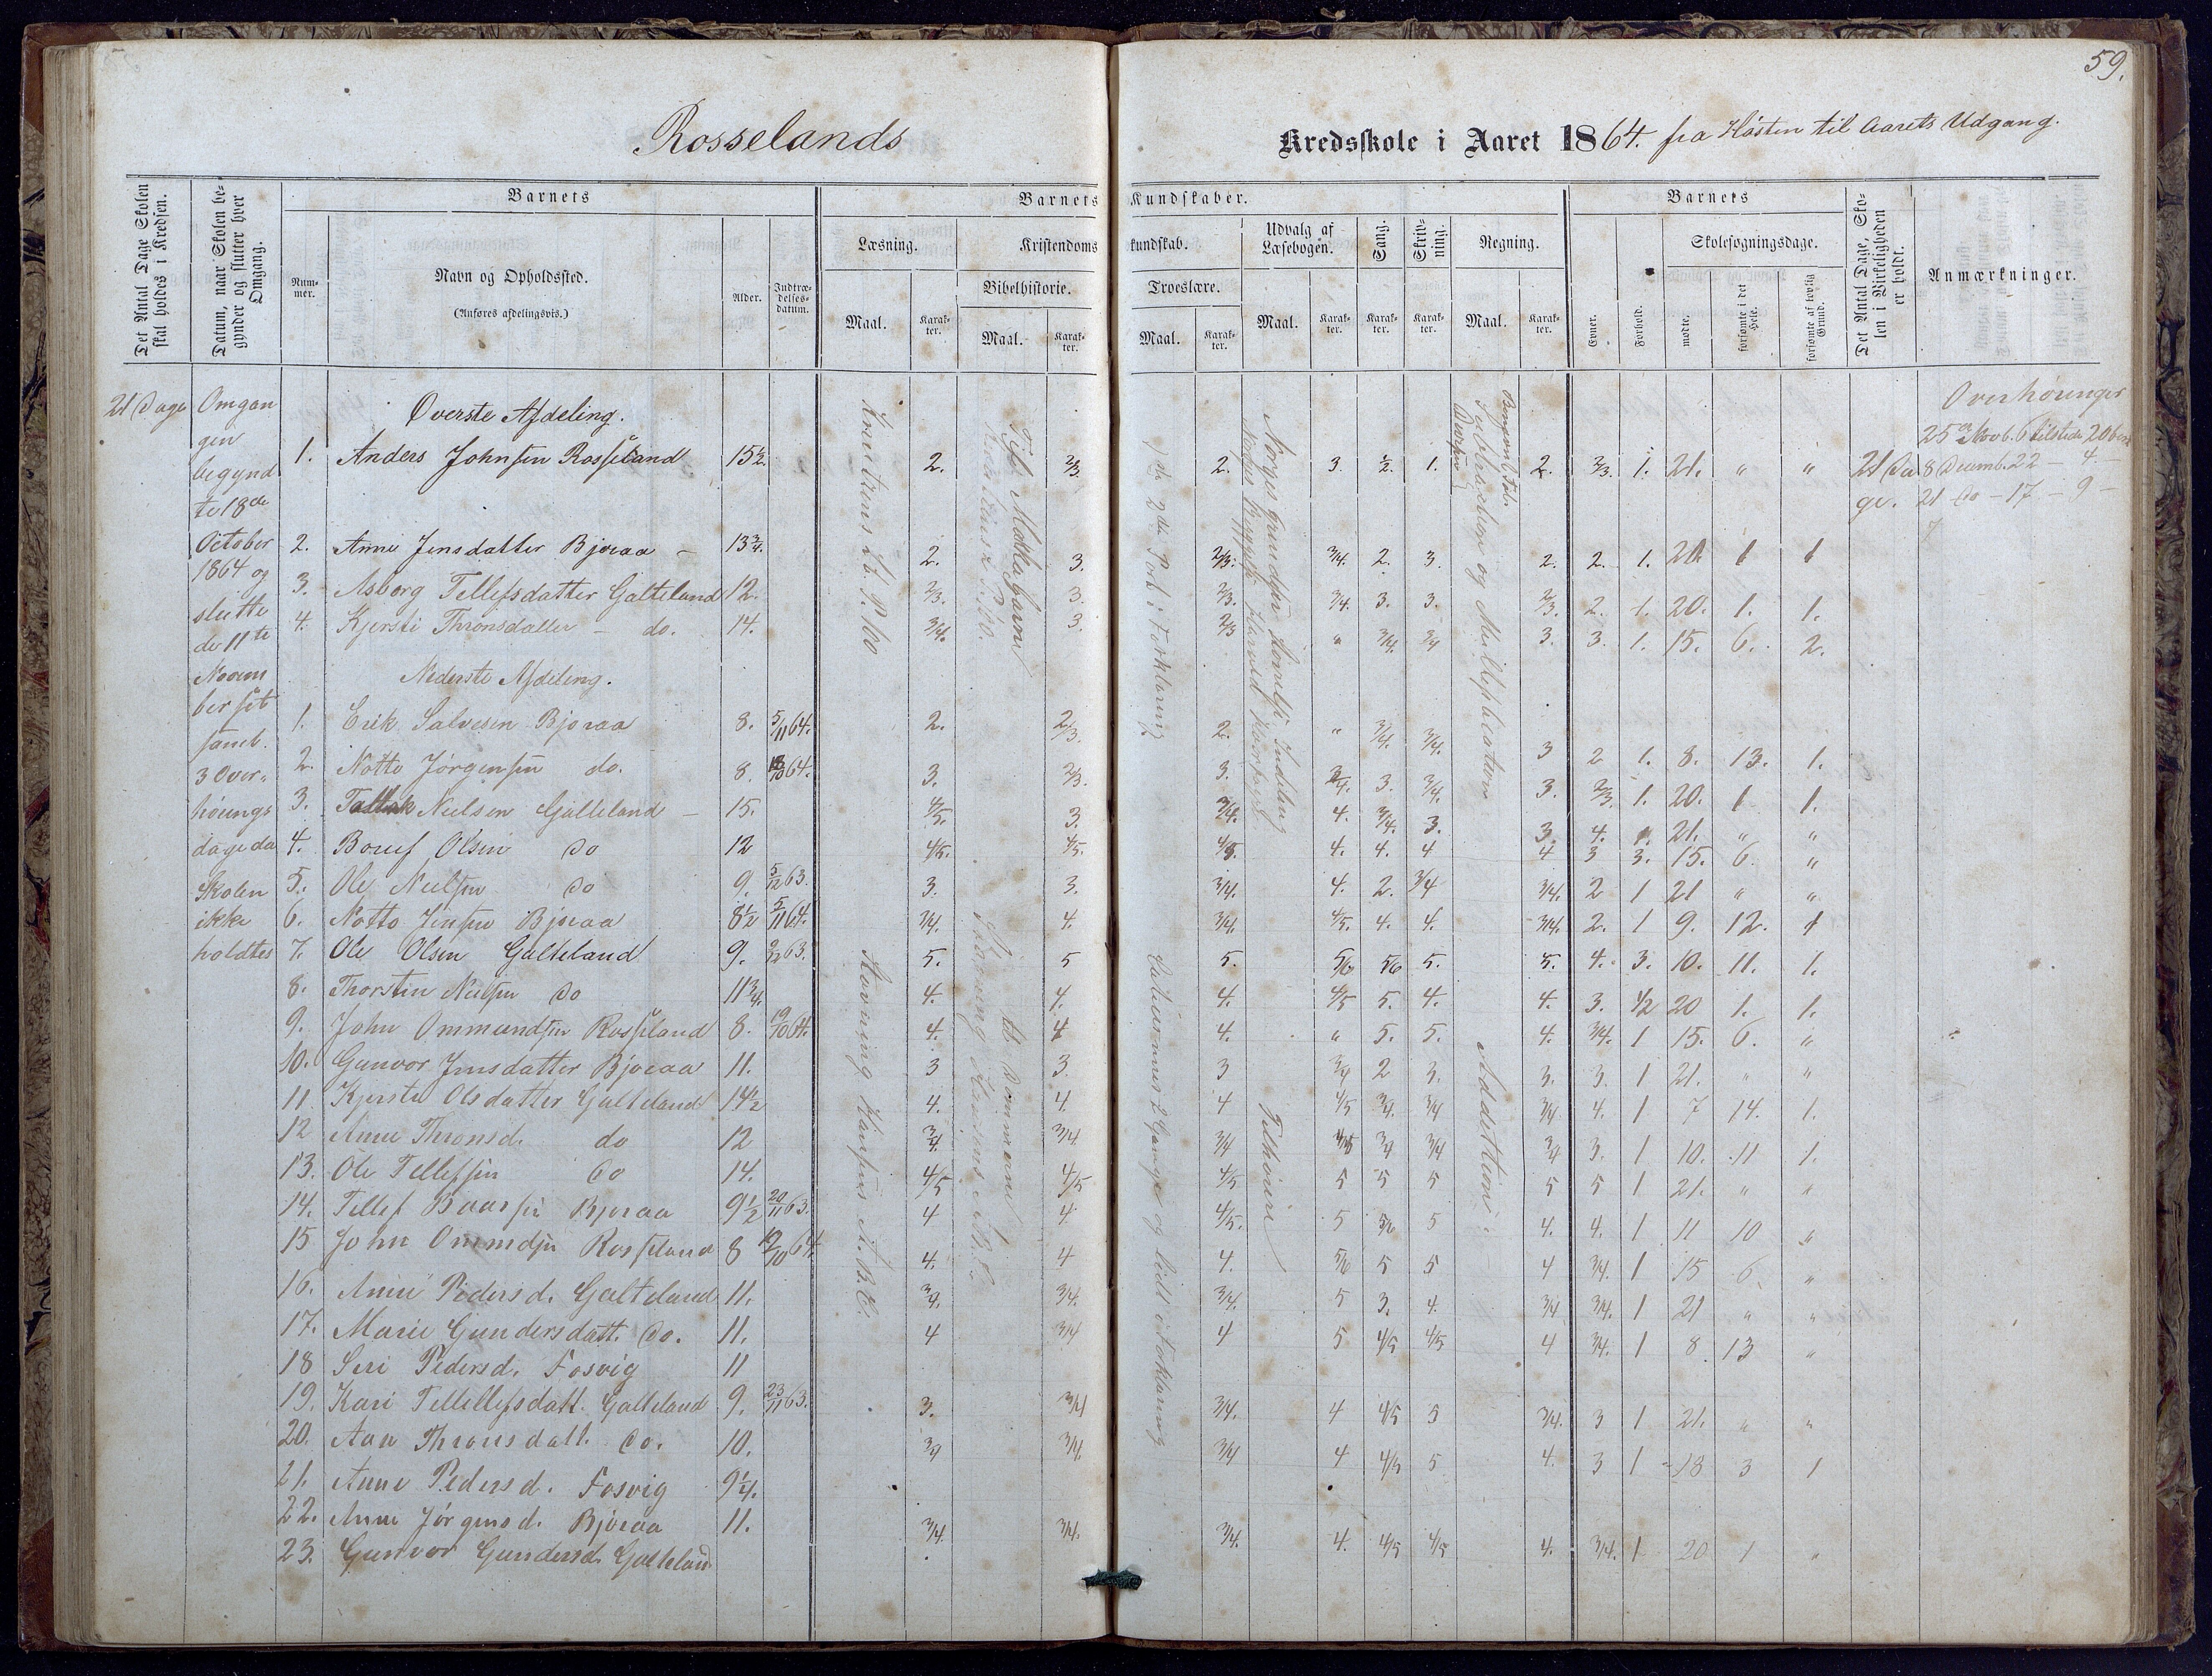 59.
Rosselands
Kredsskole i Aaret 1864. fra Høsten til Aarets Udgang.
Det Antal Dage Skolen skal holdes i Kredsen.
Datum, naar Skolen begynder og slutter hver Omgang.
Barnets
Num-mer.
Navn og Opholdssted.
(Anføres afdelingsvis.)
Alder.
Indtræ-delses-datum.
Barnets Kundskaber.
Læsning.
Maal.
Karak-ter.
Kristendomskundskab.
Bibelhistorie.
Maal.
Karak-ter.
Troeslære.
Maal.
Karak-ter.
Udvalg af Læsebogen.
Maal.
Karak-ter.
Sang.
Karak-ter.
Skriv-ning.
Karak-ter.
Regning.
Maal.
Karak-ter.
Barnets
Evner.
Forhold.
Skolesøgningsdage.
mødte.
forsømte i det Hele.
forsømte af lovlig Grund.
Det Antal Dage, Sko-len i Virkeligheden er holdt.
Anmærkninger.
21 Dage
Omgan
gen
begynd
te 18de
October
1864 og
slutte
de 11te
Novem
ber
samt.
3 Over-
hørings
dage da
Skolen
ikke
holdtes
Øverste Afdeling.
1. Anders Johnsen Rosseland 15½ 2. 2/3 2. 3. ½ 1. 2. 2/3. 1. 21. " "
2. Anne Jensdatter Bjoraa - 13¾. 2. 3. 2/3. 3/4. 2. 3. 2. 2. 1. 20 1 1
3. Asborg Tellefsdatter Galteland 12. 2/3. 3. 2/3. 3/4. 3. 3. 2/3. 2. 1. 20. 1. 1.
4. Kjersti Thronsdatter - do. 14. 3/4. 3. 2/3 " 3/4. 3/4 3. 3. 1. 15. 6. 2.
Nederste Afdeling.
1. Erik Salvesen Bjoraa 8. 5/11 64. 2. 2/3. 2. " 3/4. 3/4. 3 2 1. 8. 13. 1.
2. Notto Jørgensen do. 8. 18/10 64. 3. 2/3. 3. 3. 3/4. 3. 2/3. 1. 20. 1 1.
3. Tallak Nielsen Galteland - 15. 4/5. 3. 3/4. 4. 3/4. 3. 3. 4. 1. 21. " "
4. Olsen do 12 4/5. 4/5. 4. 4. 4 4 3 3. 15. 6. "
5. Ole Nielsen do 9. 5/12 63. 3. 3. 3/4. 4. 2. 3/4 3/4. 2 1 21 " "
6. Notto Jensen Bjoraa 8½ 5/11 64. 3/4. 4. 3/4. 4/5. 4. 4. 3/4. 2. 1 9. 12. 1
7. Ole Olsen Galteland 9. 2/12 63. 5. 5 5. 5/6 5/6 5. 5. 4. 3. 10. 11. 1.
8. Thorsten Nielsen do 11¾. 4. 4. 4. 4/5 5. 4. 4. 3. 1/2 20 1. 1.
9. John Ommundsen Rosseland 8. 19/10 64. 4. 4 4. " 5. 5. 4. 3/4. 1 15. 6. "
10. Gunvor Jensdatter Bjoraa 11. 3 3. 3 3/4 2 3. 3. 3. 1 21. " "
11 Kjersti Olsdatter Galteland 14½ 4. 4. 4 4/5 3/4. 3/4 3/4 4. 1 7 14. 1.
12 Anne Thronsd. do 12 3/4. 3/4. 3/4 3/4 3/4 3/4 3. 1 10. 11 1.
13. Ole Tellefsen do 14. 4/5 4/5 4/5 5 5 5 5 5 1 21. " "
14. Tellef Baarsen Bjoraa 9½ 20/11 63. 4 4. 4/5. 5 5/6 5 4. 4. 1 11 10 "
15 John Ommdsen Rosseland 8 19/10 64. 4. 4 4. 5/6 5 5 4 3/4. 1 15 6. "
16. Anne Pedersd. Galteland 11. 3/4. 3/4. 3/4. 5 3. 4. 3/4 3/4. 1 21 " "
17. Marie Gundersdatt. do. 11. 4 3/4 4 5 4/5 4/5 4 3/4. 1 8 13 "
18 Seri Pedersd. Fosvig 11
19. Kari Tellellefsdatt. Galteland 9. 23/11 63. 3. 3/4 3/4. 4 4/5 5 3/4. 3 1 21. " "
20. Aan Thronsdatt. do. 10. 3/4 3/4. 3/4 4 4/5 5 4. 3 1 18 3 1
21. Anne Pedersd. Fosvig 9¼.
22. Anne Jørgensd. Bjoraa 11. 3/4. 3/4. 3/4. 4. 4/5 4/5 4. 3/4. 1 20 1 "
23. Gunvor Gundersd. Galteland
2de Part i Forklaring
Norges Bebyggelse Harald Haarfagre
og Multiplication
Stavning Hansens A.B.C.
Stavning Hansens A.B.C.
til Dommerne
2 Gange og lidt i Foklaring
Tilhørere
Addition
21 Da
ge.
Overhøringer
25de Novb. 6 tilstede 20
8 Decemb. 22 - 4 -
21 do - 17 - 9 -